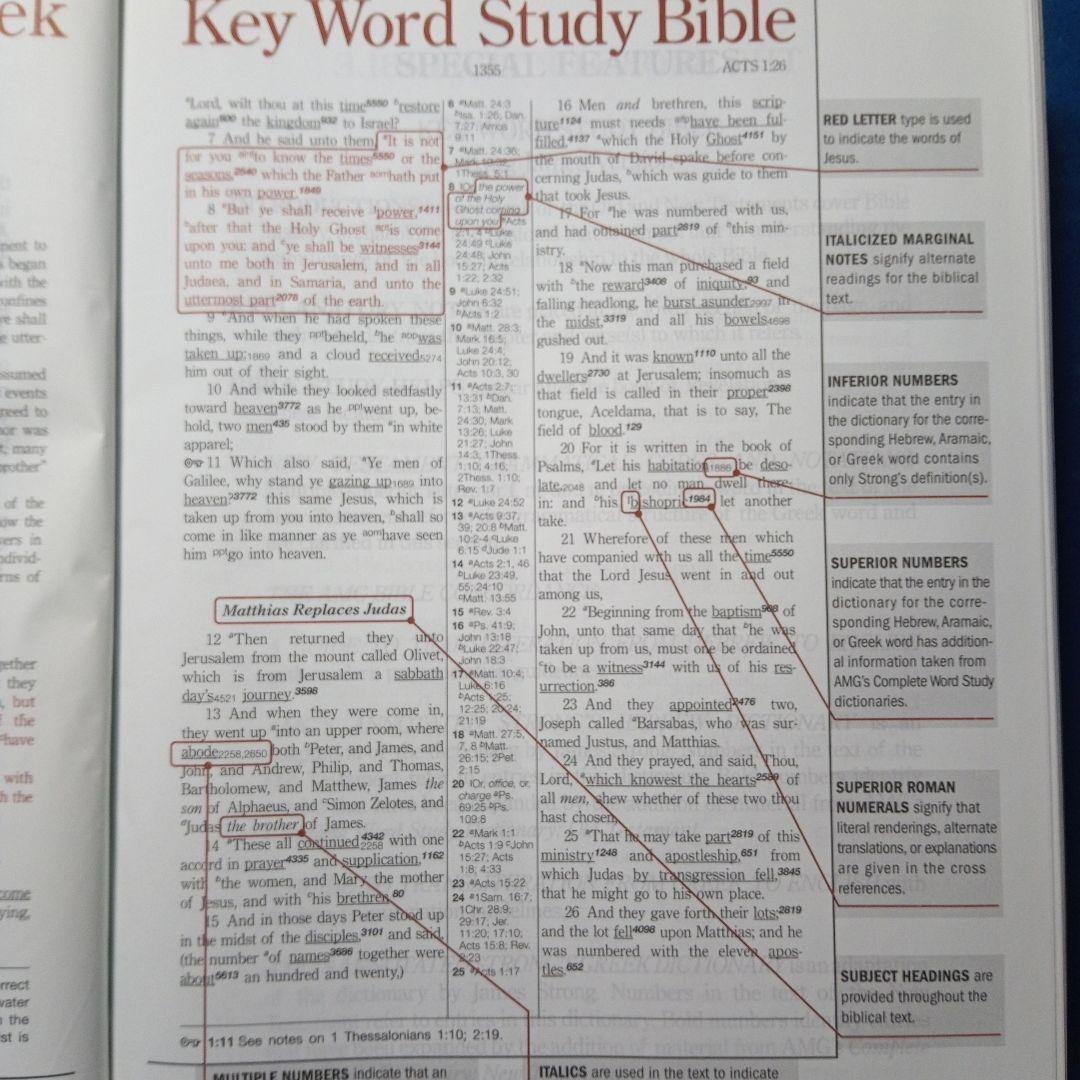 ek
Key Word Study Bible
1355
ACTS 1:26
"Lord, wilt thou at this time5550 brestore
again600 the kingdom932 to Israel?
7 And he said unto them, aIt is not
for you to know the times5550 or the
seasons,2540 which the Father aomhath put
in his own power.1849
8 aBut ye shall receive power,1411
bafter that the Holy Ghost is come
upon you: and cye shall be witnesses3144
unto me both in Jerusalem, and in all
Judaea, and in Samaria, and unto the
uttermost part2078 of the earth.
9 aAnd when he had spoken these
things, while they pptbeheld, bhe aopwas
taken up;1869 and a cloud received5274
him out of their sight.
10 And while they looked stedfastly
toward heaven3772 as he pptwent up, be-
hold, two men435 stood by them ain white
apparel;
11 Which also said, aYe men of
Galilee, why stand ye gazing up1689 into
heaven?3772 this same Jesus, which is
taken up from you into heaven, bshall so
come in like manner as ye aomhave seen
him pptgo into heaven.
Matthias Replaces Judas
12 aThen returned they unto
Jerusalem from the mount called Olivet,
which is from Jerusalem a sabbath
day's4521 journey.3598
13 And when they were come in,
they went up ainto an upper room, where
abode2258,2650 both bPeter, and James, and
John, and Andrew, Philip, and Thomas,
Bartholomew, and Matthew, James the
son of Alphaeus, and cSimon Zelotes, and
dJudas the brother of James.
14 aThese all continued4342 2258 with one
accord in prayer4335 and supplication,1162
with bthe women, and Mary the mother
of Jesus, and with chis brethren.80
15 And in those days Peter stood up
in the midst of the disciples,3101 and said,
(the number aof names3686 together were
about5613 an hundred and twenty,)
6 aMatt. 24:3
bIsa. 1:26; Dan.
7:27; Amos
9:11
7 aMatt. 24:36;
Mark 13:32;
1Thess. 5:1
8 IOr, the power
of the Holy
Ghost coming
upon you aActs
2:1, 4 bLuke
24:49 cLuke
24:48; John
15:27; Acts
1:22; 2:32
9 aLuke 24:51;
John 6:32
bActs 1:2
10 aMatt. 28:3;
Mark 16:5;
Luke 24:4;
John 20:12;
Acts 10:3, 30
11 aActs 2:7;
13:31 bDan.
7:13; Matt.
24:30; Mark
13:26; Luke
21:27; John
14:3; 1Thess.
1:10; 4:16;
2Thess. 1:10;
Rev. 1:7
12 aLuke 24:52
13 aActs 9:37,
39; 20:8 bMatt.
10:2-4 cLuke
6:15 dJude 1:1
14 aActs 2:1, 46
bLuke 23:49,
55; 24:10
cMatt. 13:55
15 aRev. 3:4
16 aPs. 41:9;
John 13:18
bLuke 22:47;
John 18:3
17 aMatt. 10:4;
Luke 6:16
bActs 1:25;
12:25; 20:24;
21:19
18 aMatt. 27:5,
7, 8 bMatt.
26:15; 2Pet.
2:15
20 IOr, office, or,
charge aPs.
69:25 bPs.
109:8
22 aMark 1:1
bActs 1:9 cJohn
15:27; Acts
1:8; 4:33
23 aActs 15:22
24 a1Sam. 16:7;
1Chr. 28:9;
29:17; Jer.
11:20; 17:10;
Acts 15:8; Rev.
2:23
25 aActs 1:17
16 Men and brethren, this scrip-
ture1124 must needs have been ful-
filled,4137 awhich the Holy Ghost4151 by
the mouth of David spake before con-
cerning Judas, bwhich was guide to them
that took Jesus.
17 For ahe was numbered with us,
and had obtained part2819 of bthis min-
istry.
18 aNow this man purchased a field
with bthe reward3408 of iniquity;93 and
falling headlong, he burst asunder2997 in
the midst,3319 and all his bowels4698
gushed out.
19 And it was known1110 unto all the
dwellers2730 at Jerusalem; insomuch as
that field is called in their proper2398
tongue, Aceldama, that is to say, The
field of blood.129
20 For it is written in the book of
Psalms, aLet his habitation1886 be deso-
late,2048 and let no man dwell there-
in: and bhis Ibishoprick1984 let another
take.
21 Wherefore of these men which
have companied with us all the time5550
that the Lord Jesus went in and out
among us,
22 aBeginning from the baptism908 of
John, unto that same day that bhe was
taken up from us, must one be ordained
cto be a witness3144 with us of his res-
urrection.386
23 And they appointed2476 two,
Joseph called aBarsabas, who was sur-
named Justus, and Matthias.
24 And they prayed, and said, Thou,
Lord, awhich knowest the hearts2589 of
all men, shew whether of these two thou
hast chosen,
25 aThat he may take part2819 of this
ministry1248 and apostleship,651 from
which Judas by transgression fell,3845
that he might go to his own place.
26 And they gave forth their lots;2819
and the lot fell4098 upon Matthias; and he
was numbered with the eleven apos-
tles.652
1:11 See notes on 1 Thessalonians 1:10; 2:19.
RED LETTER type is used
to indicate the words of
Jesus.
ITALICIZED MARGINAL
NOTES signify alternate
readings for the biblical
text.
INFERIOR NUMBERS
indicate that the entry in
the dictionary for the corre-
sponding Hebrew, Aramaic,
or Greek word contains
only Strong's definition(s).
SUPERIOR NUMBERS
indicate that the entry in the
dictionary for the corre-
sponding Hebrew, Aramaic,
or Greek word has addition-
al information taken from
AMG's Complete Word Study
dictionaries.
SUPERIOR ROMAN
NUMERALS signify that
literal renderings, alternate
translations, or explanations
are given in the cross
references.
SUBJECT HEADINGS are
provided throughout the
biblical text.
MULTIPLE NUMBERS indicate that an
ITALICS are used in the text to indicate